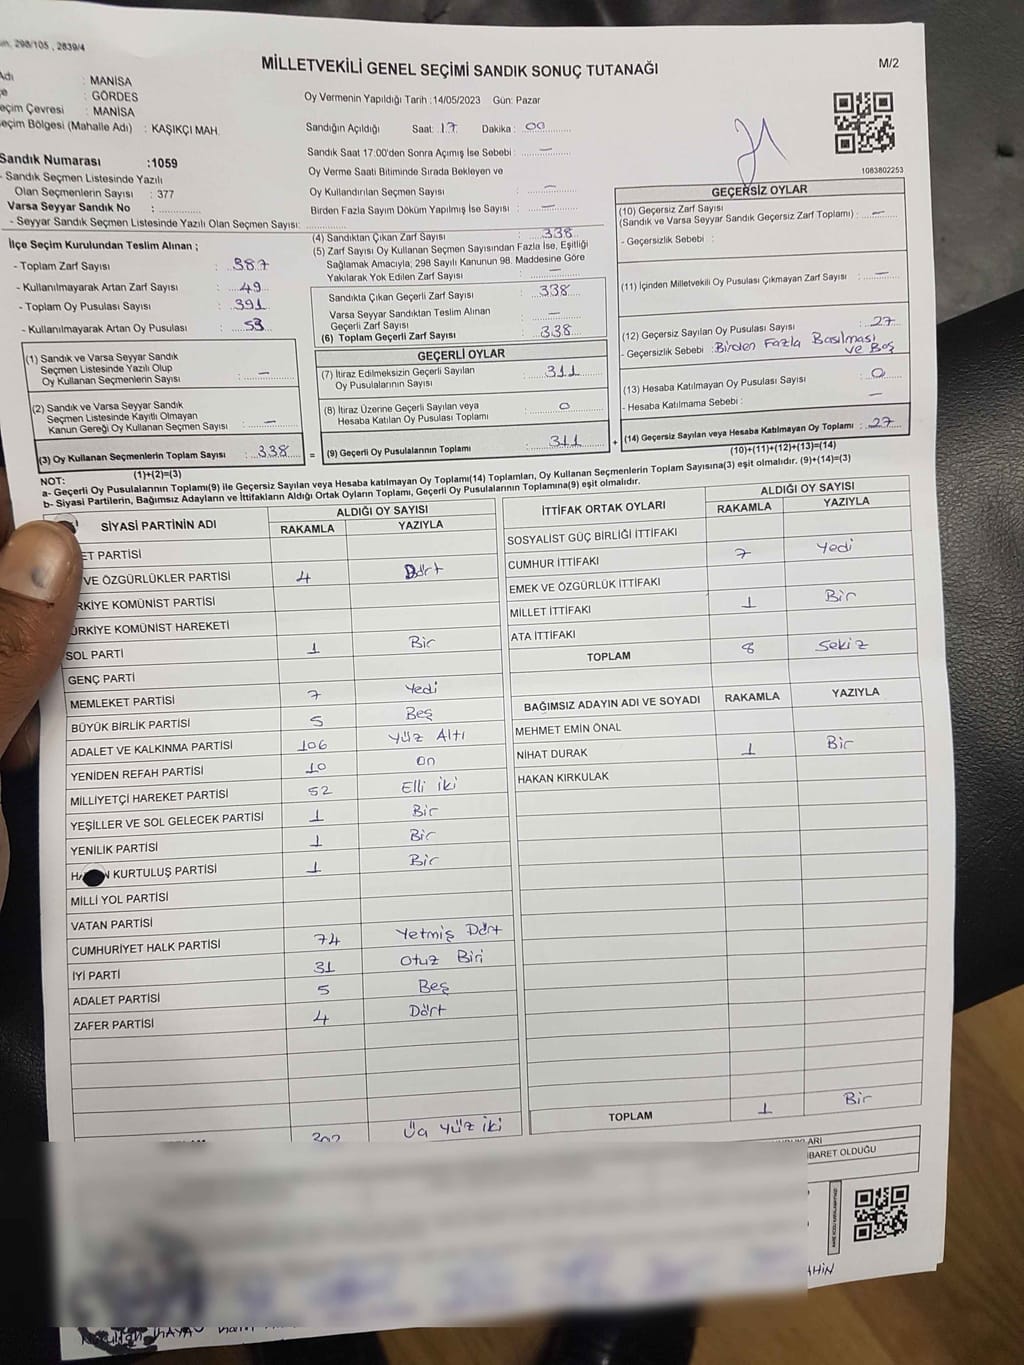 298/105 , 2839/4
MİLLETVEKİLİ GENEL SEÇİMİ SANDIK SONUÇ TUTANAĞI
M/2
: MANİSA
: GÖRDES
: MANİSA
(Mahalle Adı) : KAŞIKÇI MAH.
Oy Vermenin Yapıldığı Tarih :14/05/2023 Gün: Pazar
Sandığın Açıldığı Saat: 17 Dakika : 00
Sandık Saat 17:00'den Sonra Açılmış İse Sebebi : —
Oy Verme Saati Bitiminde Sırada Bekleyen ve
Oy Kullandırılan Seçmen Sayısı : —
Birden Fazla Sayım Döküm Yapılmış İse Sayısı : —
1083802253
Sandık Numarası :1059
- Sandık Seçmen Listesinde Yazılı
Olan Seçmenlerin Sayısı : 377
Varsa Seyyar Sandık No :
- Seyyar Sandık Seçmen Listesinde Yazılı Olan Seçmen Sayısı:
İlçe Seçim Kurulundan Teslim Alınan ;
- Toplam Zarf Sayısı : 387
- Kullanılmayarak Artan Zarf Sayısı : 49
- Toplam Oy Pusulası Sayısı : 391
- Kullanılmayarak Artan Oy Pusulası : 53
(1) Sandık ve Varsa Seyyar Sandık
Seçmen Listesinde Yazılı Olup
Oy Kullanan Seçmenlerin Sayısı : —
(2) Sandık ve Varsa Seyyar Sandık
Seçmen Listesinde Kayıtlı Olmayan
Kanun Gereği Oy Kullanan Seçmen Sayısı : —
(3) Oy Kullanan Seçmenlerin Toplam Sayısı : 338
(1)+(2)=(3)
(4) Sandıktan Çıkan Zarf Sayısı : 338
(5) Zarf Sayısı Oy Kullanan Seçmen Sayısından Fazla İse, Eşitliği
Sağlamak Amacıyla; 298 Sayılı Kanunun 98. Maddesine Göre
Yakılarak Yok Edilen Zarf Sayısı : —
Sandıkta Çıkan Geçerli Zarf Sayısı : 338
Varsa Seyyar Sandıktan Teslim Alınan
Geçerli Zarf Sayısı : —
(6) Toplam Geçerli Zarf Sayısı : 338
GEÇERLİ OYLAR
(7) İtiraz Edilmeksizin Geçerli Sayılan
Oy Pusulalarının Sayısı : 311
(8) İtiraz Üzerine Geçerli Sayılan veya
Hesaba Katılan Oy Pusulası Toplamı : 0
= (9) Geçerli Oy Pusulalarının Toplamı : 311 +
GEÇERSİZ OYLAR
(10) Geçersiz Zarf Sayısı
(Sandık ve Varsa Seyyar Sandık Geçersiz Zarf Toplamı) : —
- Geçersizlik Sebebi :
(11) İçinden Milletvekili Oy Pusulası Çıkmayan Zarf Sayısı : —
(12) Geçersiz Sayılan Oy Pusulası Sayısı : 27
- Geçersizlik Sebebi : Birden Fazla Basılması
ve Boş
(13) Hesaba Katılmayan Oy Pusulası Sayısı : 0
- Hesaba Katılmama Sebebi : —
(14) Geçersiz Sayılan veya Hesaba Katılmayan Oy Toplamı : 27
(10)+(11)+(12)+(13)=(14)
NOT:
a- Geçerli Oy Pusulalarının Toplamı(9) ile Geçersiz Sayılan veya Hesaba katılmayan Oy Toplamı(14) Toplamları, Oy Kullanan Seçmenlerin Toplam Sayısına(3) eşit olmalıdır. (9)+(14)=(3)
b- Siyasi Partilerin, Bağımsız Adayların ve İttifakların Aldığı Ortak Oyların Toplamı, Geçerli Oy Pusulalarının Toplamına(9) eşit olmalıdır.
SİYASİ PARTİNİN ADI
ALDIĞI OY SAYISI
RAKAMLA YAZIYLA
ET PARTİSİ
VE ÖZGÜRLÜKLER PARTİSİ 4 Dört
RKİYE KOMÜNİST PARTİSİ
ÜRKİYE KOMÜNİST HAREKETİ
SOL PARTİ 1 Bir
GENÇ PARTİ
MEMLEKET PARTİSİ 7 Yedi
BÜYÜK BİRLİK PARTİSİ 5 Beş
ADALET VE KALKINMA PARTİSİ 106 Yüz Altı
YENİDEN REFAH PARTİSİ 10 On
MİLLİYETÇİ HAREKET PARTİSİ 52 Elli iki
YEŞİLLER VE SOL GELECEK PARTİSİ 1 Bir
YENİLİK PARTİSİ 1 Bir
KURTULUŞ PARTİSİ 1 Bir
MİLLİ YOL PARTİSİ
VATAN PARTİSİ
CUMHURİYET HALK PARTİSİ 74 Yetmiş Dört
İYİ PARTİ 31 Otuz Biri
ADALET PARTİSİ 5 Beş
ZAFER PARTİSİ 4 Dört
302 Üç Yüz iki
İTTİFAK ORTAK OYLARI
ALDIĞI OY SAYISI
RAKAMLA YAZIYLA
SOSYALİST GÜÇ BİRLİĞİ İTTİFAKI
CUMHUR İTTİFAKI 7 Yedi
EMEK VE ÖZGÜRLÜK İTTİFAKI
MİLLET İTTİFAKI 1 Bir
ATA İTTİFAKI
TOPLAM 8 Sekiz
BAĞIMSIZ ADAYIN ADI VE SOYADI RAKAMLA YAZIYLA
MEHMET EMİN ÖNAL
NİHAT DURAK 1 Bir
HAKAN KIRKULAK
TOPLAM 1 Bir
IBARET OLDUĞU